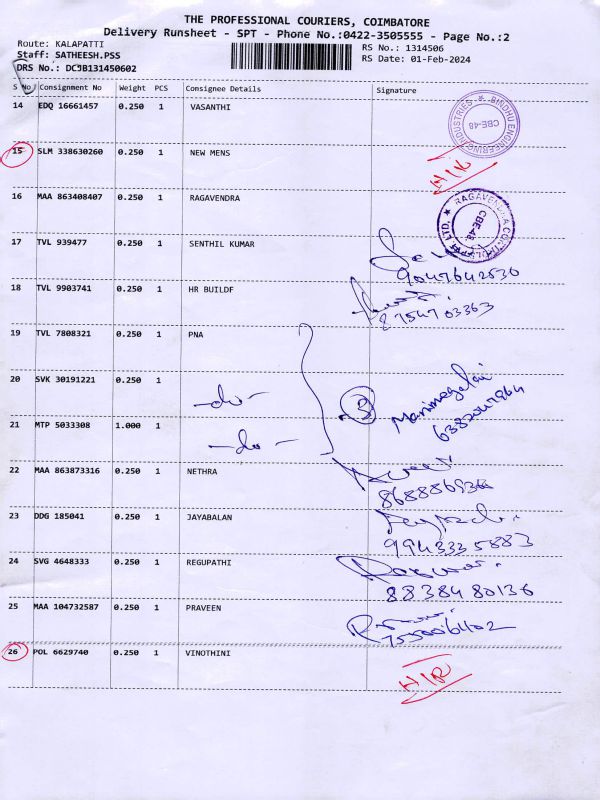 THE PROFESSIONAL COURIERS, COIMBATORE
Delivery Runsheet - SPT - Phone No.:0422-3505555 - Page No.:2
Route: KALAPATTI
RS No.: 1314506
Staff: SATHEESH.PSS
RS Date: 01-Feb-2024
DRS No.: DCJB131450602
S No. Consignment No Weight PCS Consignee Details Signature
14 EDQ 16661457 0.250 1 VASANTHI
BINDHU ENGINEERING INDUSTRIES ★
CBE-48
15 SLM 338630260 0.250 1 NEW MENS
H/R
16 MAA 863408407 0.250 1 RAGAVENDRA
CBE-48.
17 TVL 939477 0.250 1 SENTHIL KUMAR
9047642530
18 TVL 9903741 0.250 1 HR BUILDF
8754703363
19 TVL 7808321 0.250 1 PNA
20 SVK 30191221 0.250 1
-do-
3
Manimegalai
21 MTP 5033308 1.000 1
-do-
22 MAA 863873316 0.250 1 NETHRA
23 DDG 185041 0.250 1 JAYABALAN
9943335883
24 SVG 4648333 0.250 1 REGUPATHI
8838480136
25 MAA 104732587 0.250 1 PRAVEEN
26 POL 6629740 0.250 1 VINOTHINI
H/R